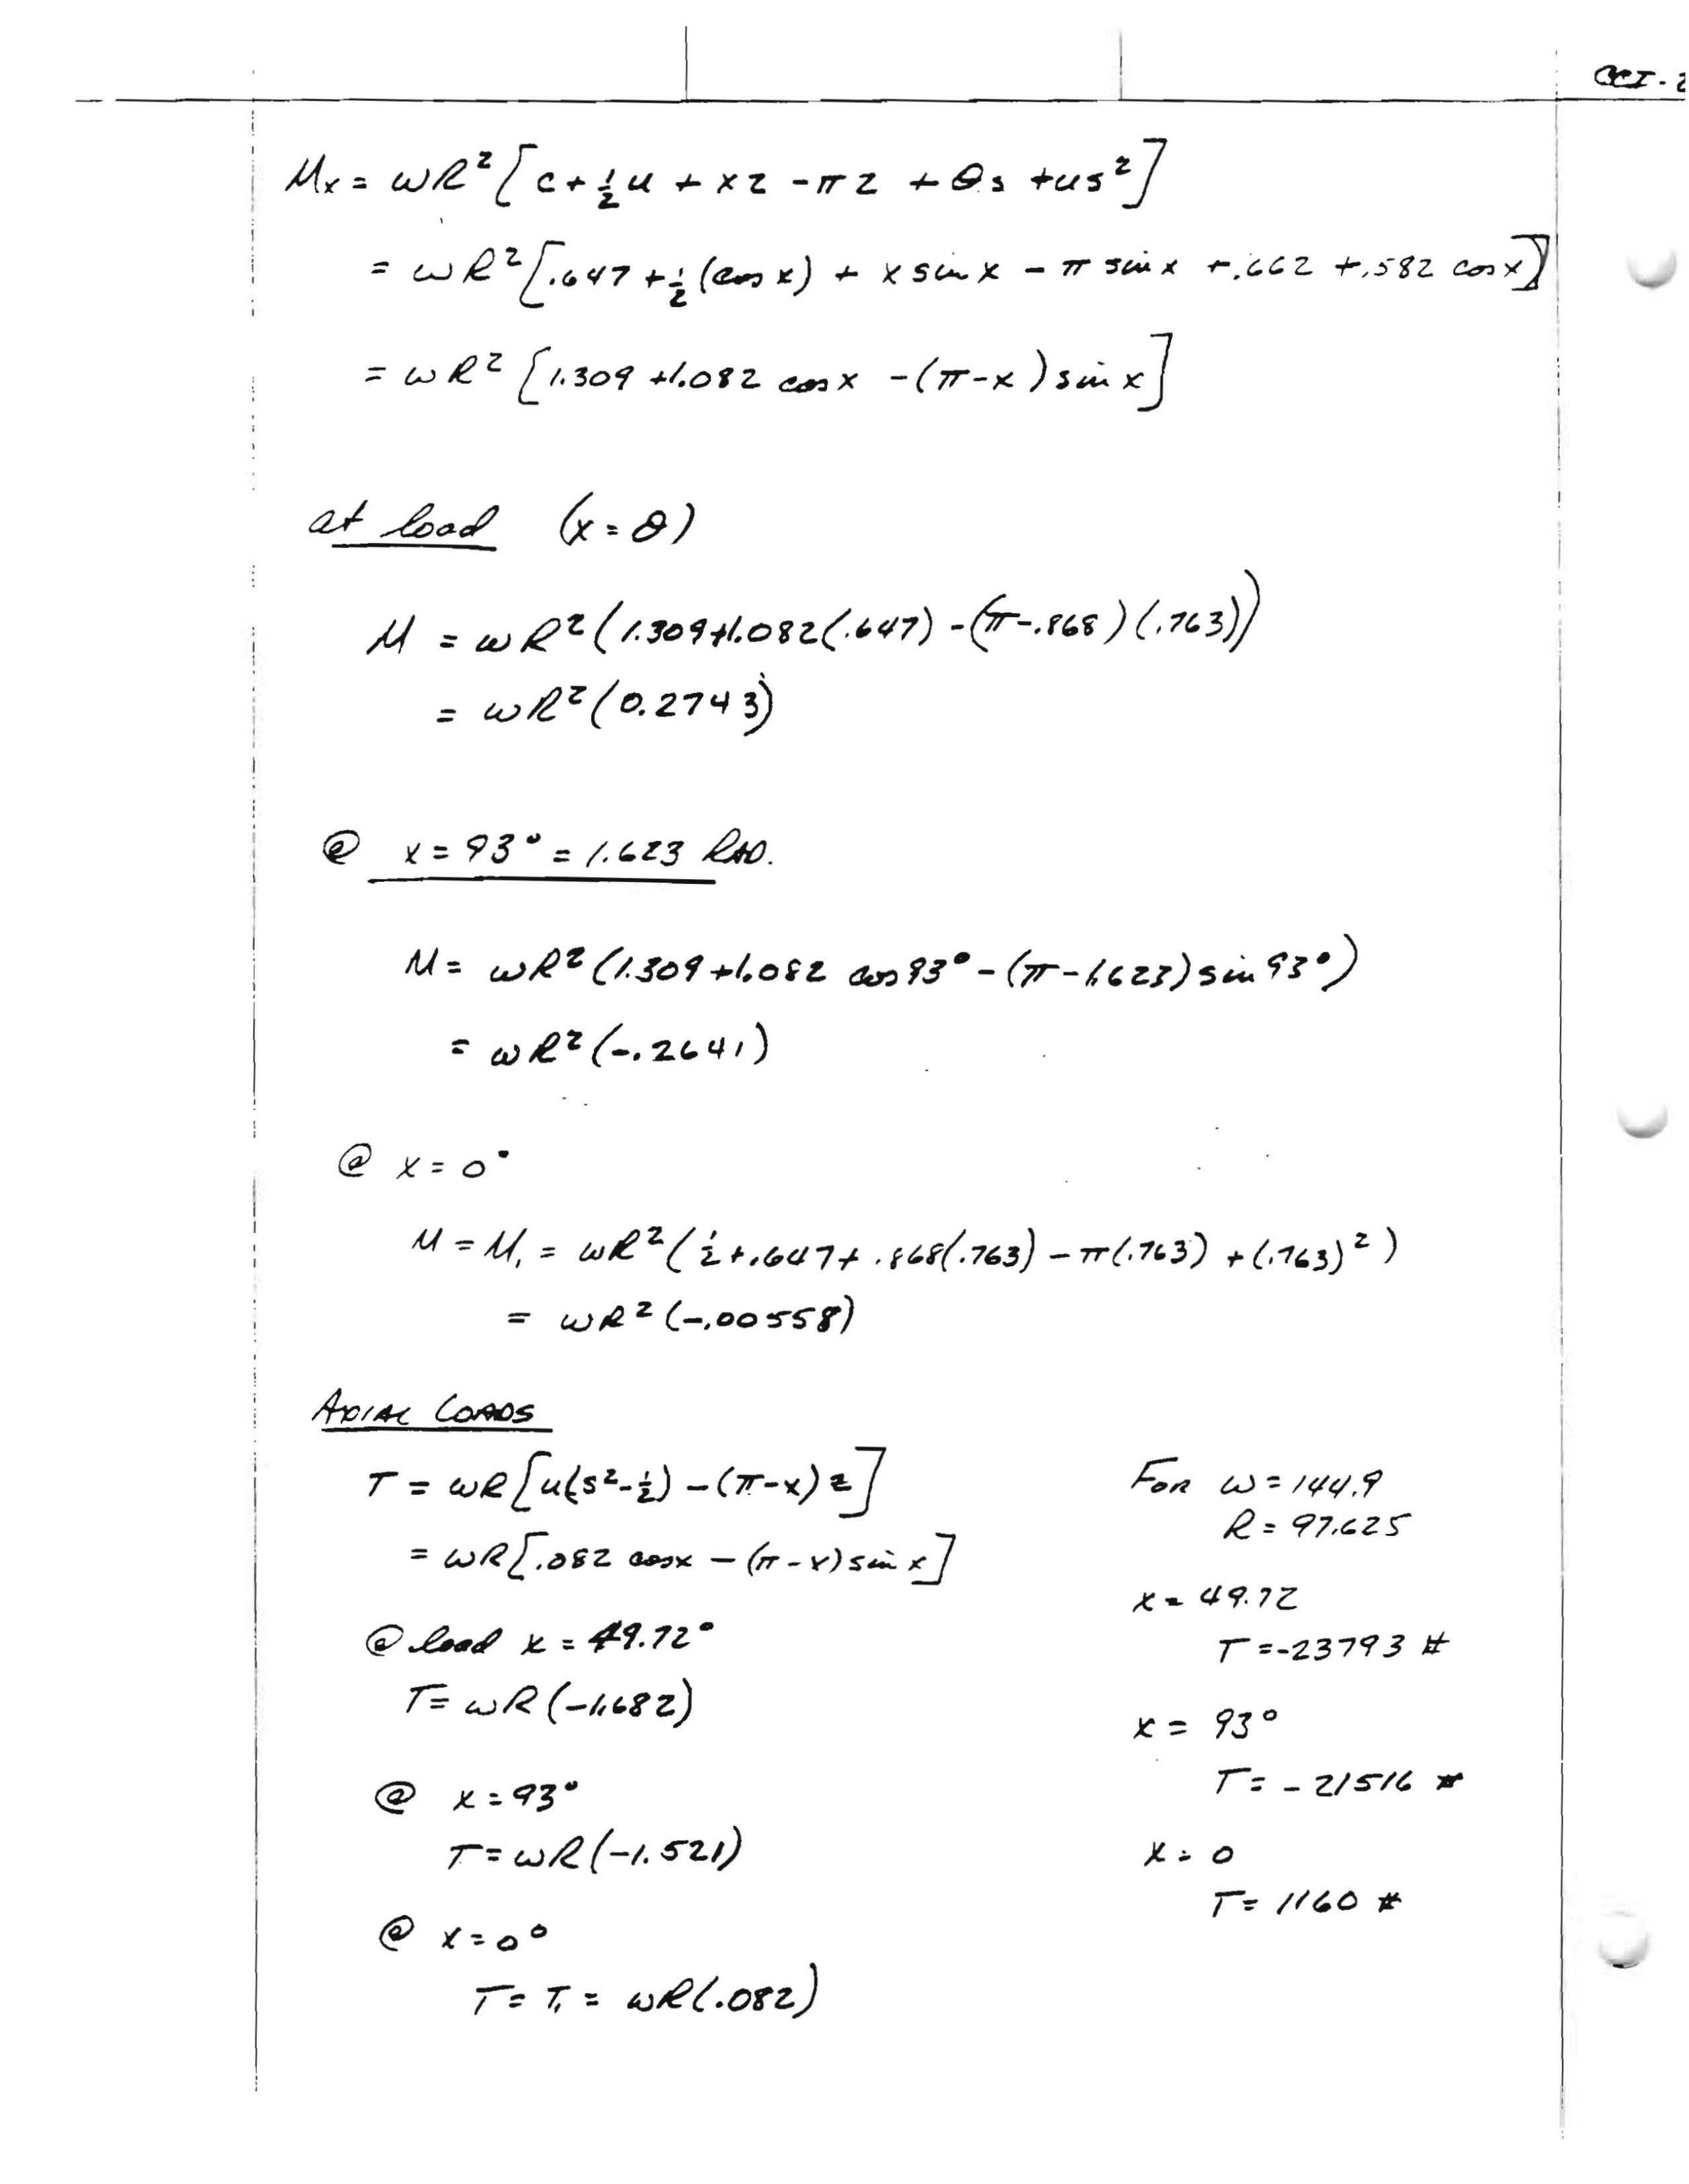 CCI-2
Mx = ωR²[c+½u + xz -πz + θs +us²]
= ωR²[.647+½(cos x) + x sin x - π sin x +.662 +.582 cos x]
= ωR²[1.309+1.082 cos x -(π-x) sin x]
at load (x=θ)
M = ωR²(1.309+1.082(.647) -(π-.868)(.763))
= ωR²(0.2743)
@ x=93°=1.623 RAD.
M= ωR²(1.309+1.082 cos 93° -(π-1.623) sin 93°)
= ωR²(-.2641)
@ x=0°
M=M₁ = ωR²(½+.647+.868(.763) -π(.763) +(.763)²)
= ωR²(-.00558)
AXIAL LOADS
T = ωR[u(s²-½) -(π-x)z]
= ωR[.082 cosx -(π-x) sin x]
@ load x = 49.72°
T= ωR(-1.682)
@ x=93°
T=ωR(-1.521)
@ x=0°
T= T₁ = ωR(.082)
FOR ω=144.9
R= 97.625
x= 49.72
T=-23793 #
x= 93°
T= -21516 #
x= 0
T= 1160 #